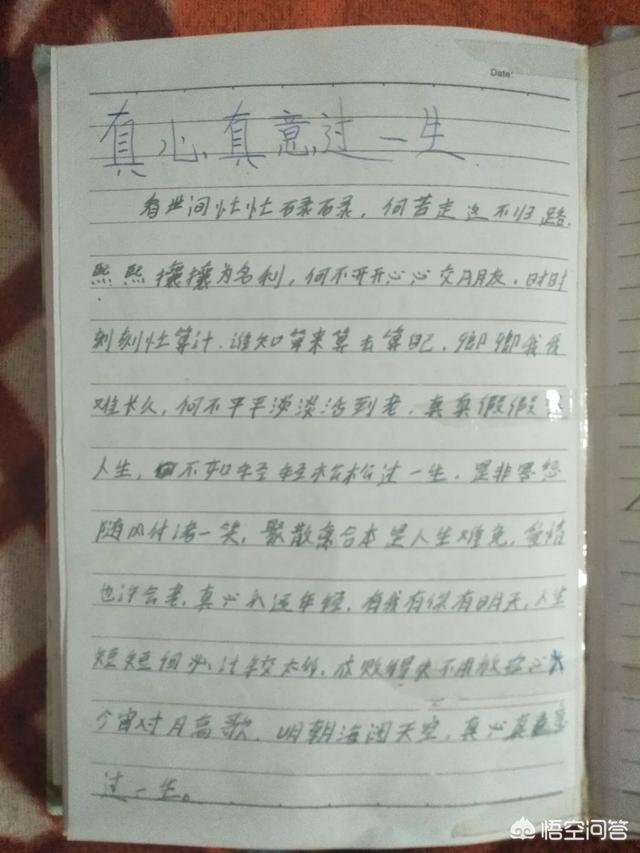 Date:
真心真意过一生
看世间忙忙碌碌，何苦走这不归路，
熙熙攘攘为名利，何不开开心心交朋友，时时
刻刻忙算计，谁知算来算去算自己，卿卿我我
难长久，何不平平淡淡活到老，真真假假
人生，何不如轻轻松松过一生，是非恩怨
随风付诸一笑，聚散离合本是人生难免，爱情
也许会老，真心永远年轻，有我有你有明天，人生
短短何必计较太多，成败得失不用放在心
今宵对月高歌，明朝海阔天空，真心真意
过一生。
悟空问答